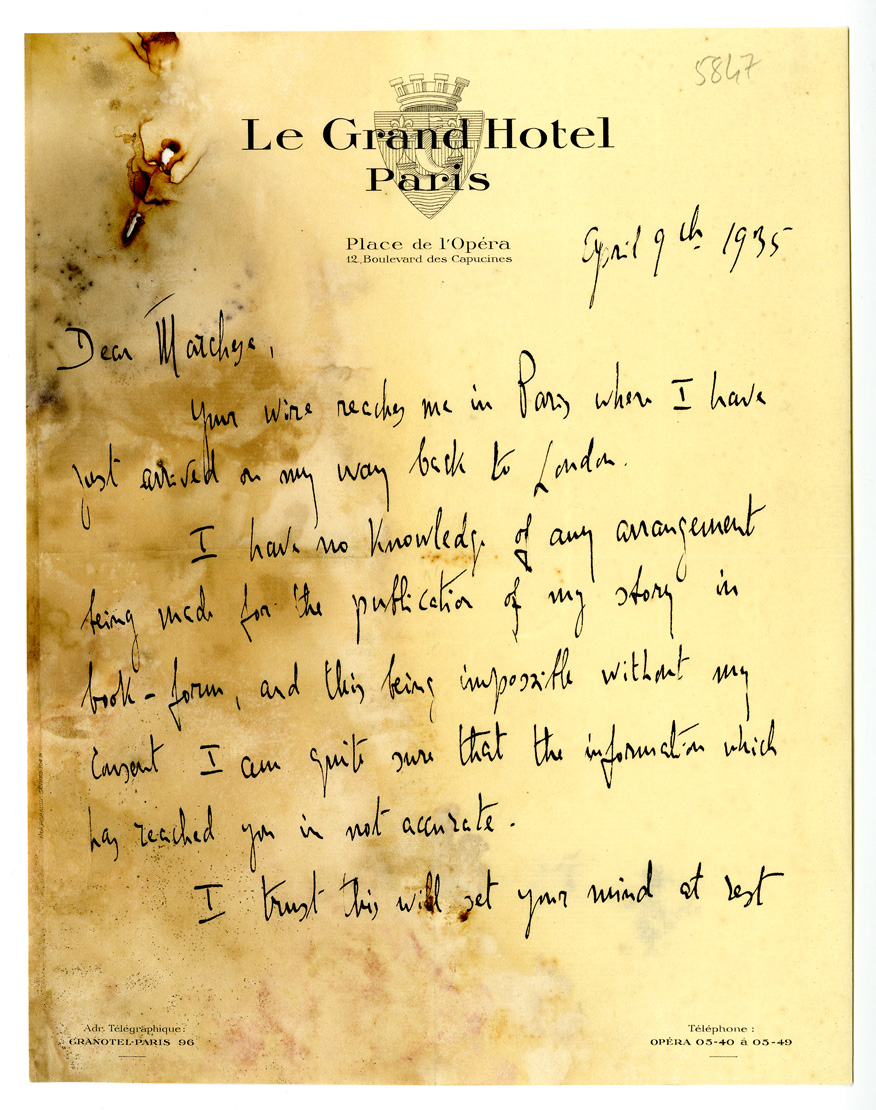 5847
Le Grand Hotel
Paris
Place de l'Opéra
12, Boulevard des Capucines
April 9th 1935
Dear Marchese,
Your wire reaches me in Paris where I have
just arrived on my way back to London.
I have no knowledge of any arrangement
being made for the publication of my story in
book-form, and this being impossible without my
consent I am quite sure that the information which
has reached you is not accurate.
I trust this will set your mind at rest
Adr. Télégraphique:
GRANOTEL-PARIS 96
Téléphone:
OPÉRA 05-40 à 05-49